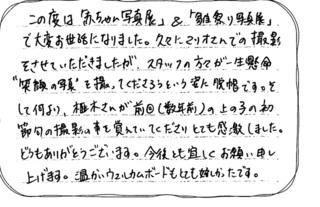 この度は「赤ちゃん写真展」&「雛祭り写真展」
で大変お世話になりました。久々にマリオさんでの撮影
をさせていただきましたが、スタッフの方々が一生懸命
"笑顔の写真"を撮ってくださろうという姿に脱帽です。そ
して何より、植木さんが前回(数年前)の上の子の初
節句の撮影の事を覚えていてくださりとても感激しました。
どうもありがとうございます。今後とも宜しくお願い申し
上げます。温かいウェルカムボードもとても嬉しかったです。